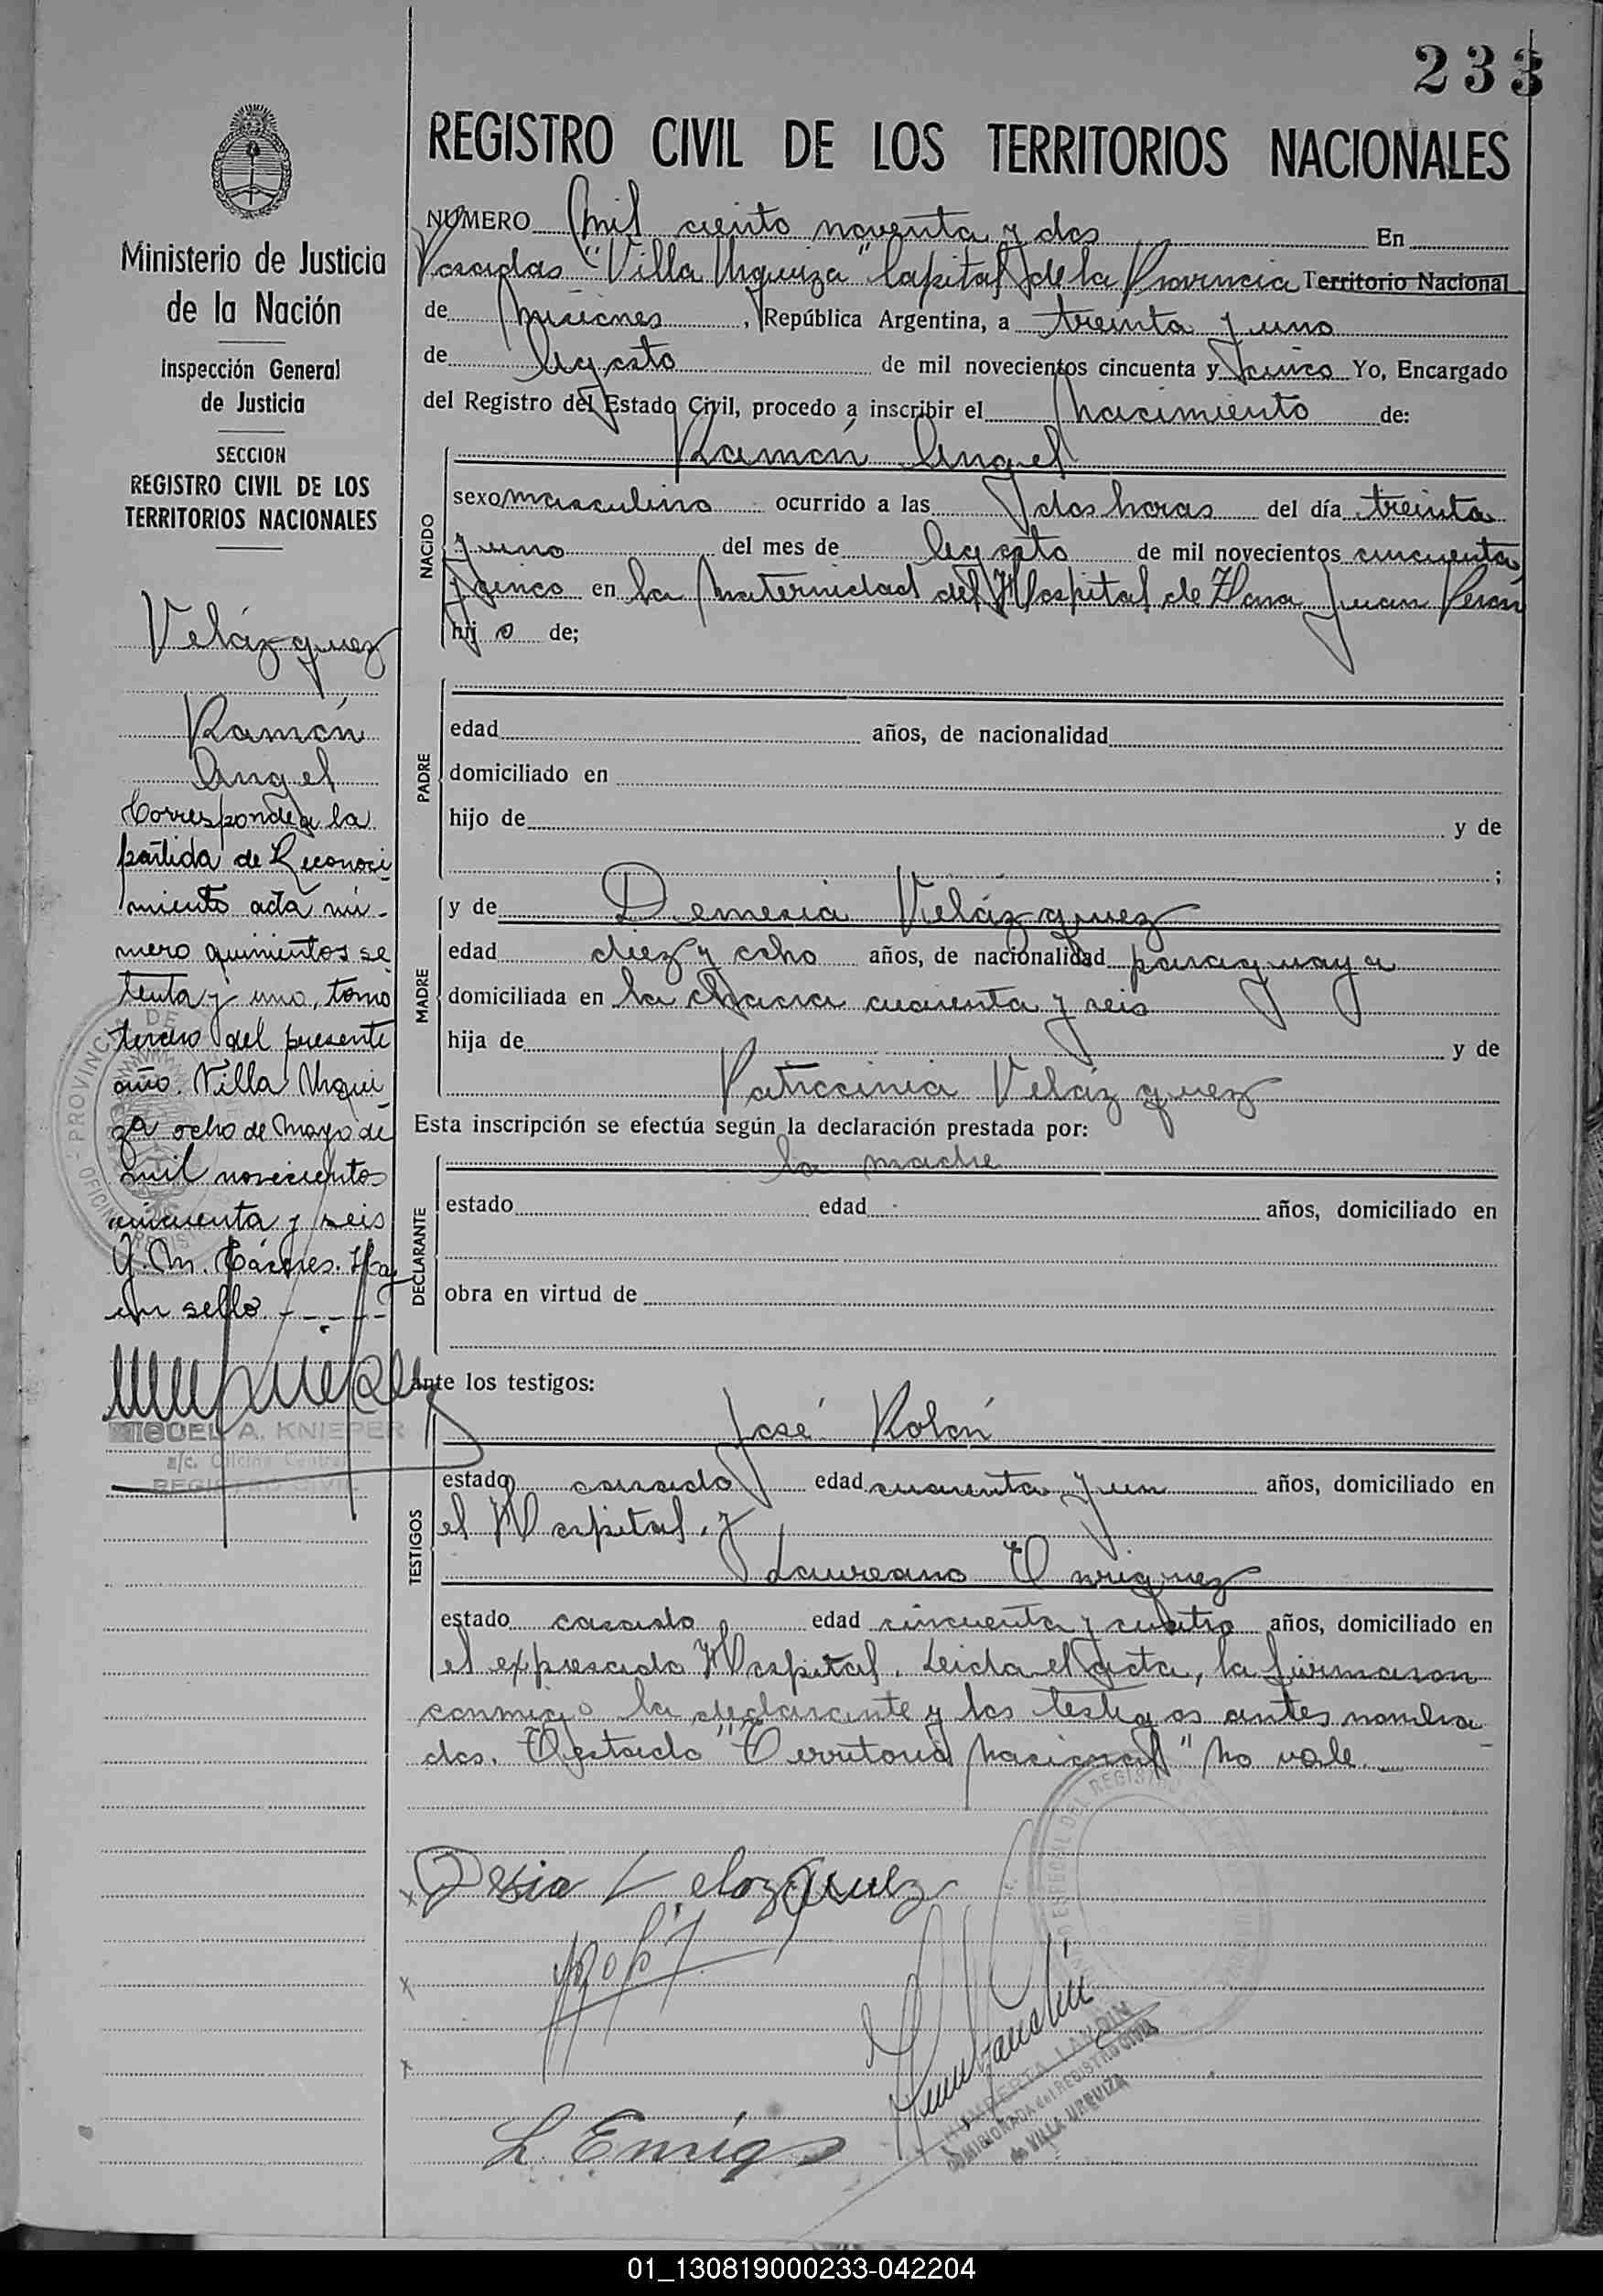 233
REGISTRO CIVIL DE LOS TERRITORIOS NACIONALES
NUMERO Mil ciento noventa y dos En
Posadas "Villa Urquiza" Capital de la Provincia Territorio Nacional
de Misiones, República Argentina, a treinta y uno
de Agosto de mil novecientos cincuenta y cinco Yo, Encargado
del Registro del Estado Civil, procedo a inscribir el nacimiento de:
NACIDO
Ramón Angel
sexo masculino ocurrido a las dos horas del día treinta
y uno del mes de Agosto de mil novecientos cincuenta
y cinco en la Maternidad del Hospital de Zona Juan Peron
hijo de;
PADRE
edad años, de nacionalidad
domiciliado en
hijo de y de
;
MADRE
y de Demesia Velázquez
edad diez y ocho años, de nacionalidad paraguaya
domiciliada en la chacra cuarenta y seis
hija de y de
Patrocinia Velázquez
Esta inscripción se efectúa según la declaración prestada por:
DECLARANTE
la madre
estado edad años, domiciliado en
obra en virtud de
ante los testigos:
TESTIGOS
José Rolón
estado casado edad cuarenta y un años, domiciliado en
el Hospital, y
Laureano Enriquez
estado casado edad cincuenta y cuatro años, domiciliado en
el expresado Hospital. Leida el acta, la firmaron
conmigo la declarante y los testigos antes nombra
dos. Testado "Territorio Nacional" No vale.
Velazquez
L. Enriq
HUMBERTA LANDIN
COMISIONADA del REGISTRO CIVIL
de VILLA URQUIZA
Ministerio de Justicia
de la Nación
Inspección General
de Justicia
SECCION
REGISTRO CIVIL DE LOS
TERRITORIOS NACIONALES
Velázquez
Ramón
Angel
Corresponde a la
partida de Reconoci
miento acta nú-
mero quinientos se
tenta y uno, tomo
tercero del presente
año. Villa Urqui
za ocho de Mayo de
mil novecientos
cincuenta y seis
Hay
un sello.
MIGUEL A. KNIEPER
a/c. Oficina Central
REGISTRO CIVIL
01_130819000233-042204